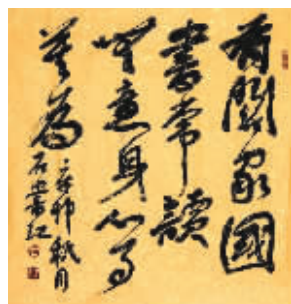 有關家國
書常讀
無意身心事
莫為
辛卯秋月